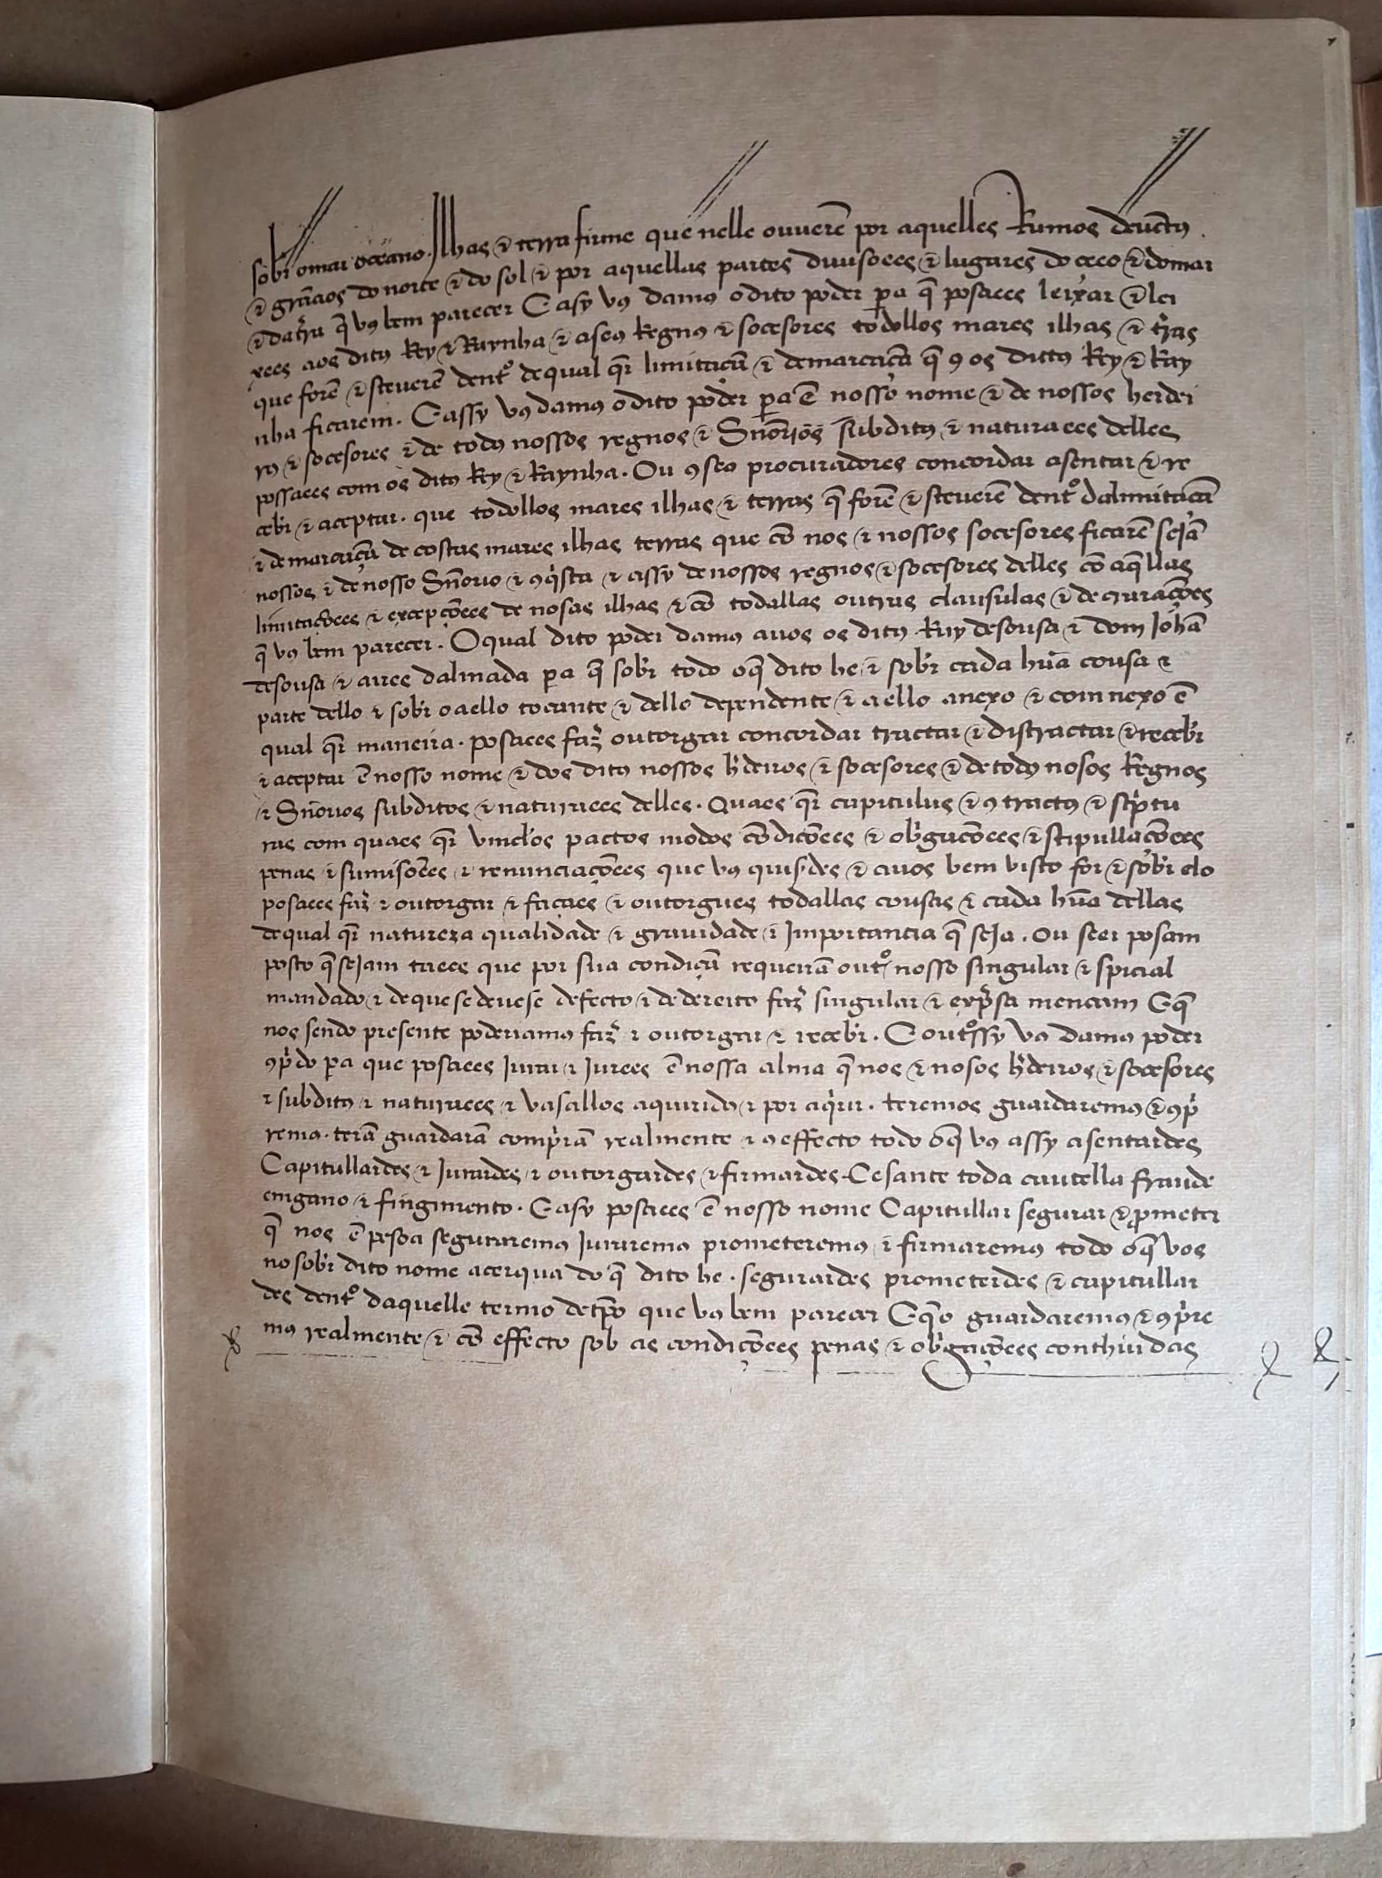 sobr̃ o mar oceano. Ilhas & terra firme que nelle ouverẽ por aquelles Rumos deuẽtus.
& grãaos do norte & do sol & por aquellas partes diuisoees & lugares do ceeo & do mar
& da tr̃ra q̃ vos bem parecer E asy vos damos o dito poder pera q̃ posaaes leixar & lei
xees aos ditos Rey & Raynha & a seos Regnos & socesores todollos mares ilhas & tr̃ras
que forẽ & steuerẽ dentro de qual qr̃ limitaçã & demarcaçã q̃ 9 os dittos Rey & Ray
nha ficarem. E assy vos damos o dito poder pera ẽ nosso nome & de nossos herdei
ros & socesores & de todos nossos regnos & Sñorios subditos & naturaees delles
possaees com os ditos Rey & Raynha. Ou 9 seos procuradores concordar asentar & re
cebr̃ & aceptar. que todollos mares ilhas & terras q̃ forẽ & steuerẽ dentro da limitaçã
& demarcaçã de costas mares ilhas terras que cõ nos & nossos socesores ficarẽ sejã
nossos & de nosso Sñorio & 9q̃sta & assy de nossos regnos & socesores delles cõ aq̃llas
limitaçõees & excepçõees de nosas ilhas & cõ todallas outras clausulas & decraraçõees
q̃ vos bem parecer. O qual dito poder damos a uos os ditos Ruy de sousa & dom Johã
de sousa & aires dalmada pera q̃ sobr̃ todo o q̃ dito he & sobr̃ cada hũa cousa &
parte dello & sobr̃ o a ello tocante & dello dependente & a ello anexo & comnexo ẽ
qual qr̃ maneira. posaees faz̃ outorgar concordar tractar & distractar & recebr̃
& aceptar ẽ nosso nome & dos ditos nossos hr̃deiros & socesores & de todos nosos Regnos
& Sñorios subditos & naturaees delles. Quaes qr̃ capitulus & 9tractos & scp̃tu
ras com quaes qr̃ vinclos pactos modos cõdiçõees & obr̃gaçõees & stipullaçõees
penas & sumisõees & renunciaçõees que vos quisr̃des & a uos bem visto for & sobr̃ elo
posaees faz̃ & outorgar & façaes & outorgues todallas cousas & cada hũa dellas
de qual qr̃ natureza qualidade & grauidade & Importancia q̃ seja. Ou seer posam
posto q̃ sejam taees que por sua condiçã requeirã outro nosso singular & spicial
mandado & de que se deuese de fecto & de dereito faz̃ singular & exp̃sa mencam E q̃
nos sendo presente poderiamos faz̃ & outorgar & recebr̃. E outrossy vos damos poder
9pr̃do pera que posaees Jurar & Jurees ẽ nossa alma q̃ nos & nosos hr̃deiros & socesores
& subditos & naturaees & vasallos aquirido & por aq̃rir. teremos guardaremos & 9pr̃
remos. terã guardarã compr̃rã realmente & 9 effecto todo o q̃ vos assy asentardes
Capitullardes & Jurardes & outorgardes & firmardes. Cesante toda cautella fraude
engano & fingimento. E asy posaees ẽ nosso nome Capitullar segurar & prometer
q̃ nos ẽ pesoa seguraremos Juraremos prometeremos & firmaremos todo o q̃ vos
no sobr̃ dito nome acerqua do q̃ dito he. segurardes prometerdes & capitullar
des dentro daquelle termo de tp̃o que vos bem parecer E q̃ o guardaremos & 9pr̃re
mos realmente & cõ effecto sob as condiçõees penas & obr̃gaçõees conthiudas